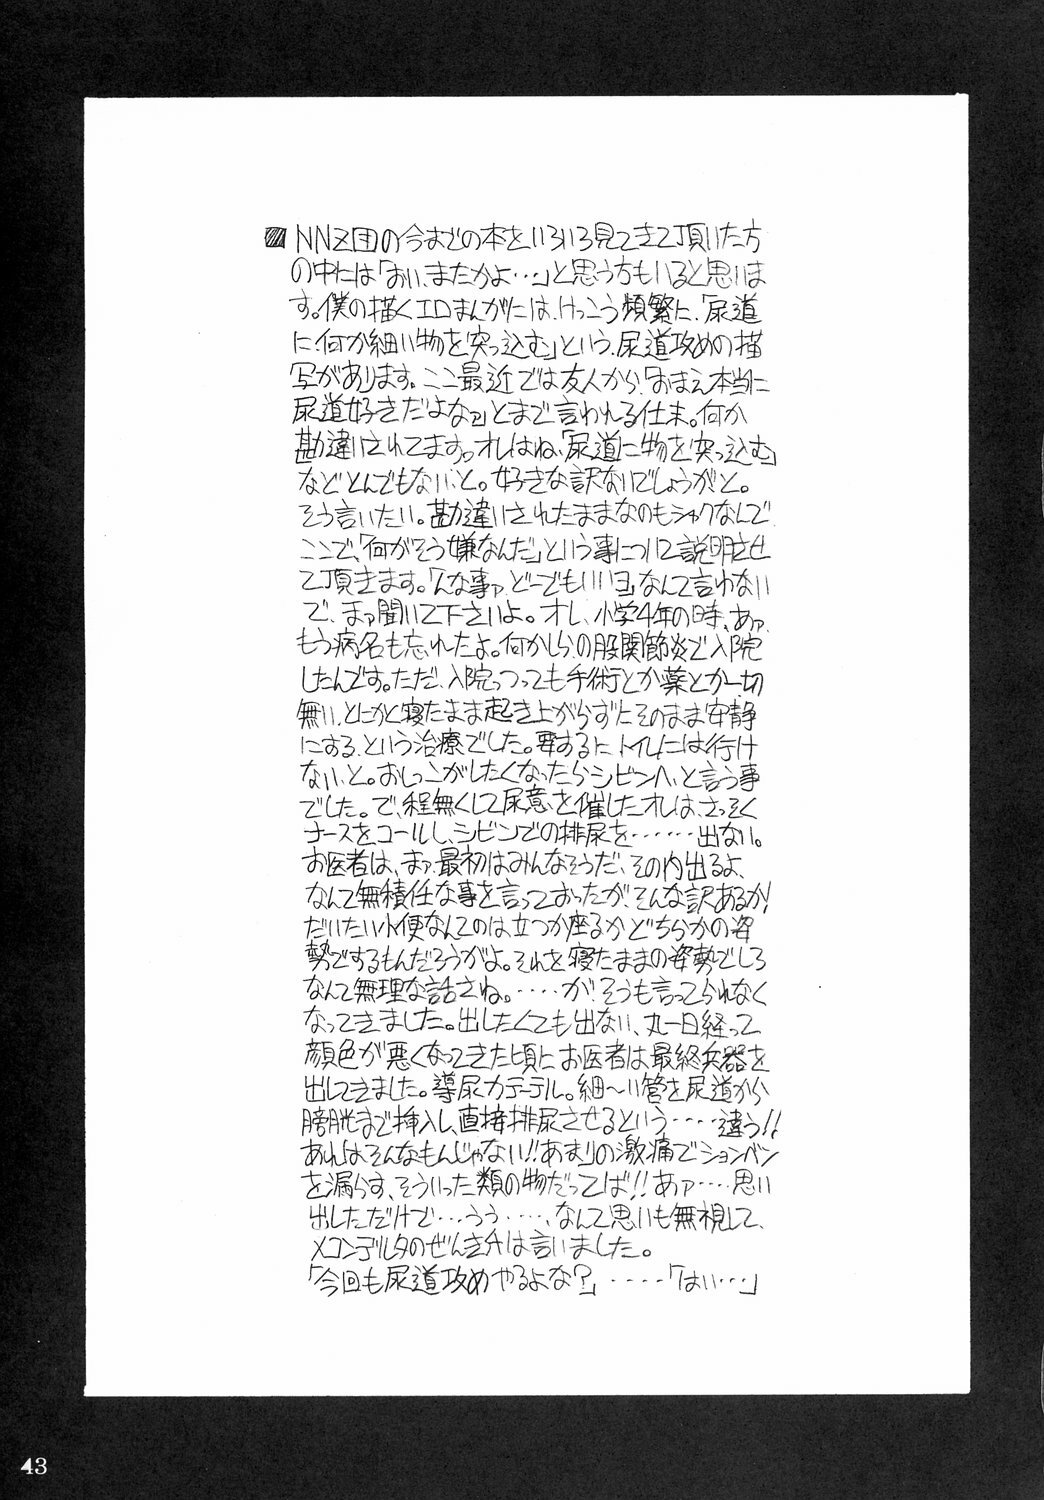 NNZ団の今までの本をいろいろ見てきて頂いた方
の中には「おい、またかよ…」と思う方もいると思いま
す。僕の描くエロまんがには、けっこう頻繁に、「尿道
に、何か細い物を突っ込む」という、尿道攻めの描
写があります。ここ最近では友人から、「おまえ本当に
尿道好きだよなァ」とまで言われる仕末。何か
勘違いされてます。オレはね、「尿道に物を突っ込む」
などとんでもない、と。好きな訳ないでしょうがと。
そう言いたい。勘違いされたままなのもシャクなんで
ここで、「何がそう嫌なんだ」という事について説明させ
て頂きます。「んな事ァ、どーでもいいヨ」なんて言わない
で、まァ聞いて下さいよ。オレ、小学4年の時、あァ、
もう病名も忘れたよ。何かしらの股関節炎で入院
したんです。ただ、入院っつっても手術とか薬とか一切
無い、とにかく寝たまま起き上がらずにそのまま安静
にする、という治療でした。要するに、トイレには行け
ない、と。おしっこがしたくなったらシビンへ、と言う事
でした。で、程無くして尿意を催したオレは、さっそく
ナースをコールし、シビンでの排尿を………出ない。
お医者は、まァ、最初はみんなそうだ、その内出るよ、
なんて無積任な事を言っておったが、そんな訳あるか!
だいたい小便なんてのは立つか座るかどちらかの姿
勢でするもんだろうがよ。それを寝たままの姿勢でしろ
なんて無理な話さね。‥‥が、そうも言ってられなく
なってきました。出したくても出ない、丸一日経って
顔色が悪くなってきた頃に、お医者は最終兵器を
出してきました。導尿カテーテル。細〜い管を尿道から
膀胱まで挿入し、直接排尿させるという‥‥違う!!
あれはそんなもんじゃない!!あまりの激痛でションベン
を漏らす、そういった類の物だってば!!あァ‥‥思い
出しただけで…うぅ‥‥、なんて思いも無視して、
メコンデルタのぜんき弁は言いました。
「今回も尿道攻めやるよな?」‥‥‥「はい…」
43